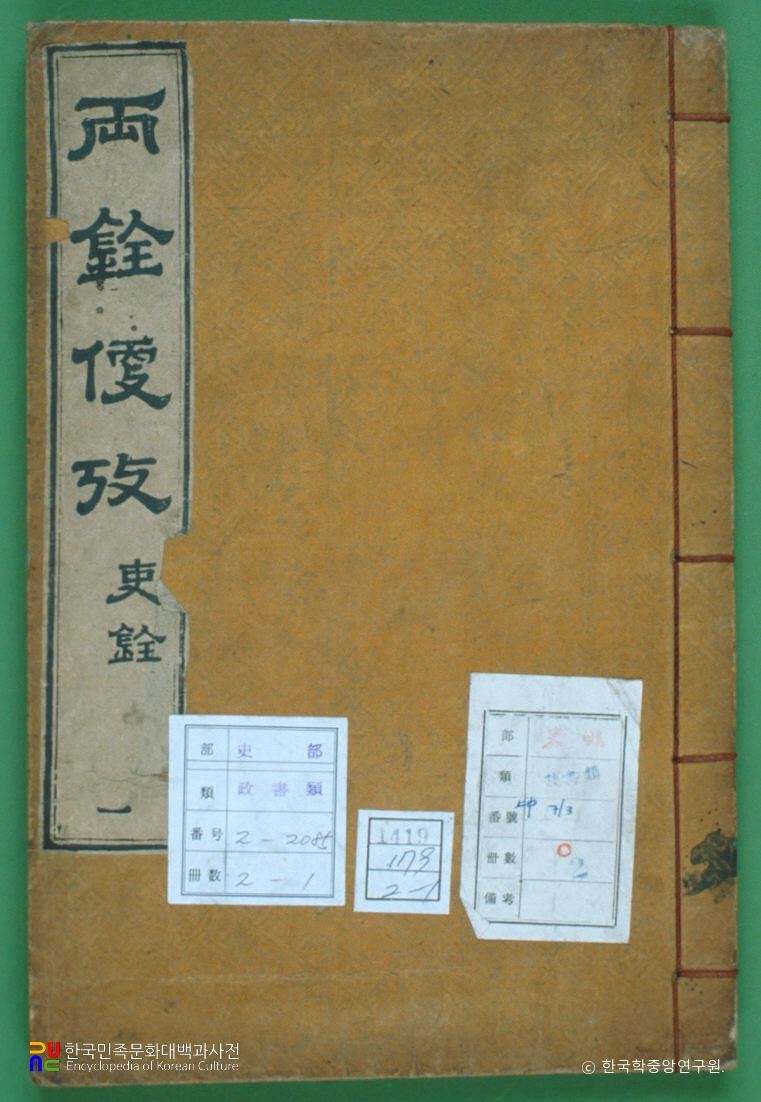 両銓便攷
吏銓
一
部 史部
類 政書類
番号 2-2085
冊数 2-1
179
2-1
部
類
番號
冊數 2
備考
한국민족문화대백과사전
Encyclopedia of Korean Culture
© 한국학중앙연구원.